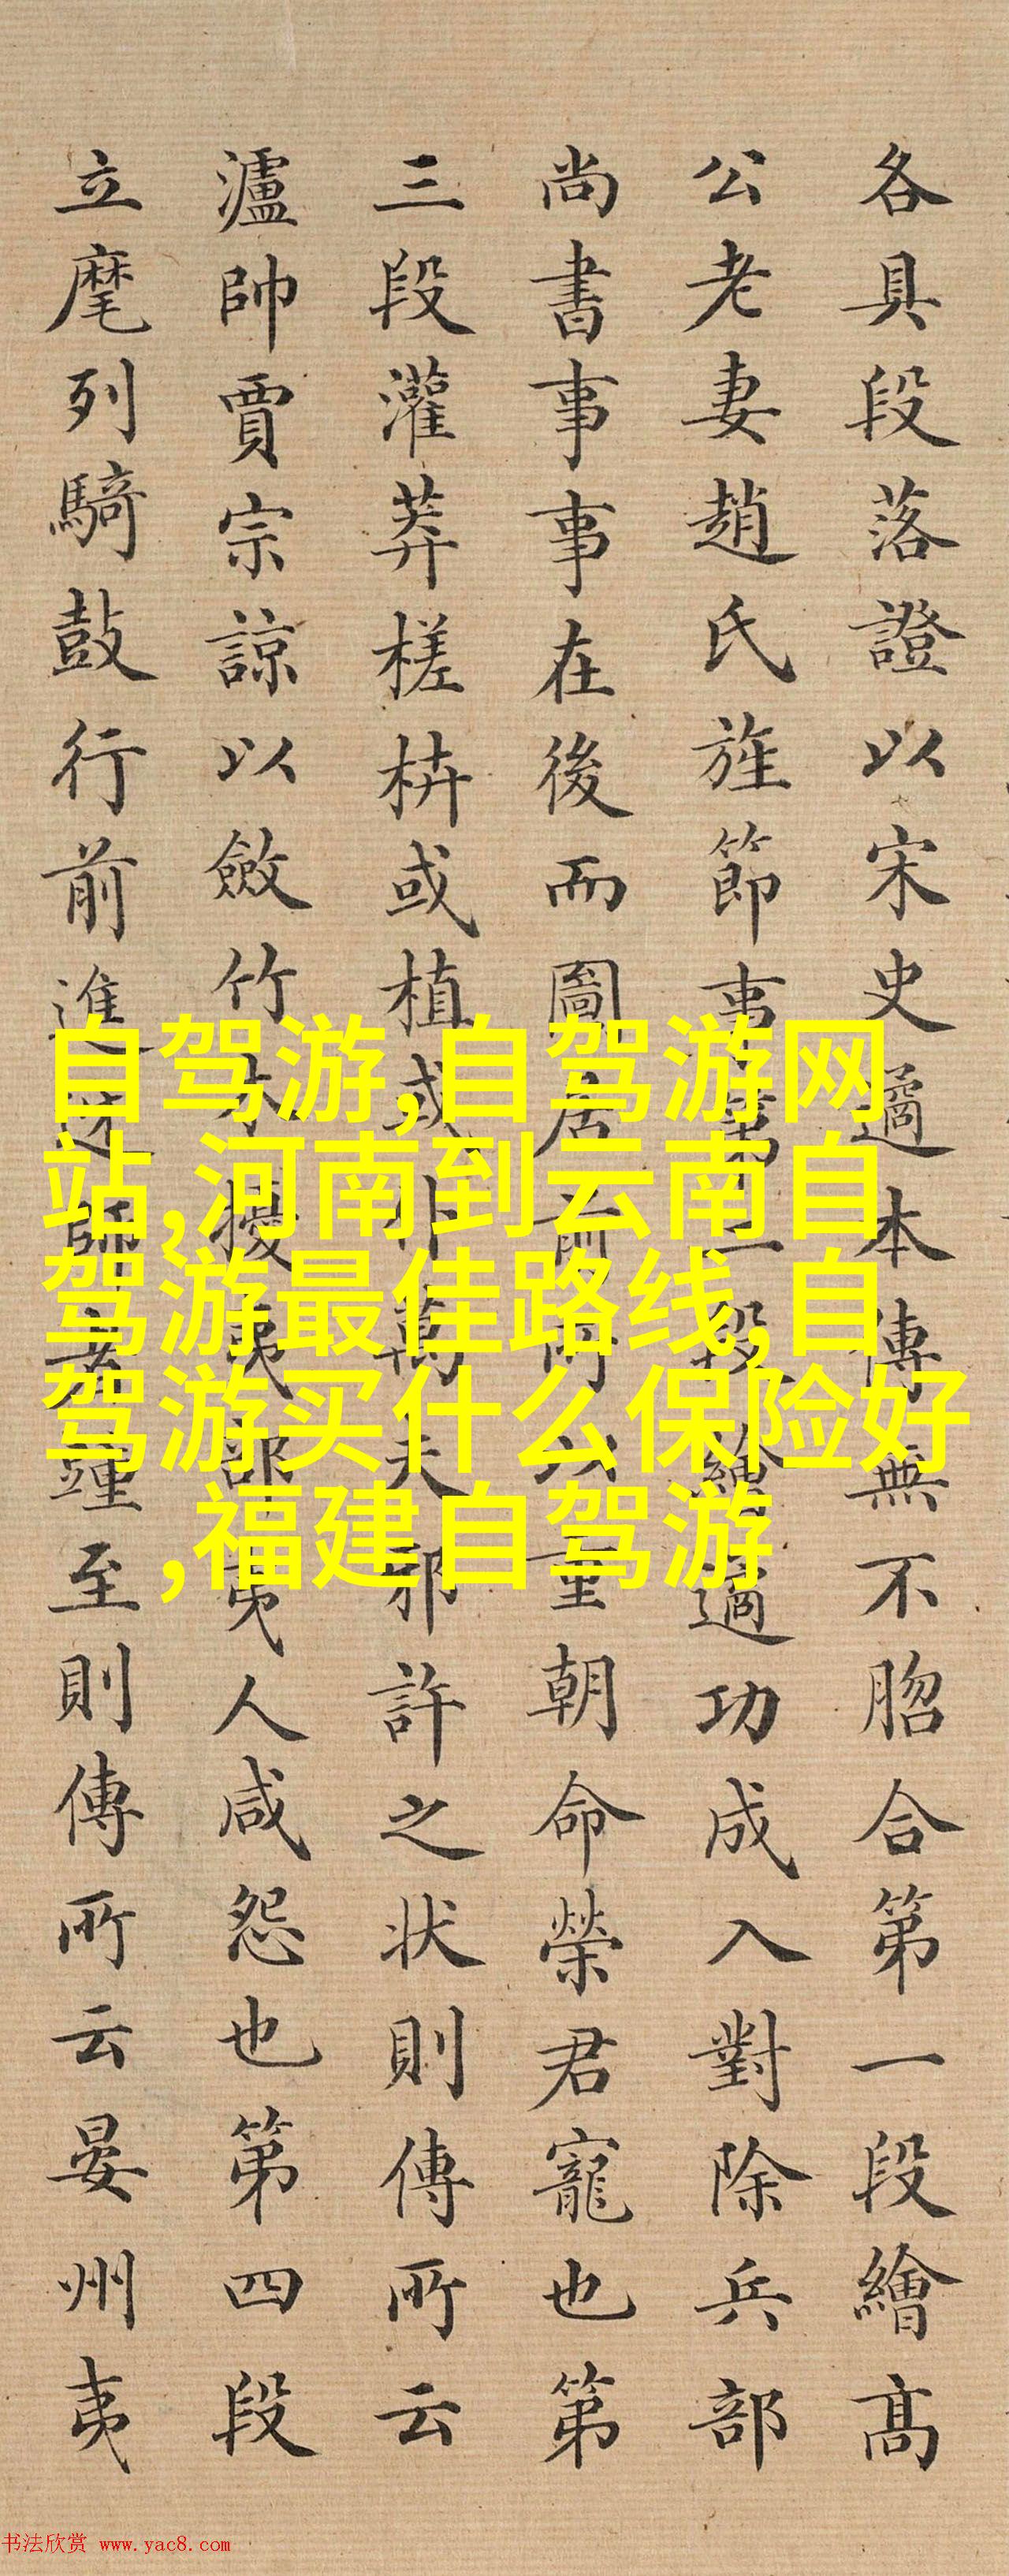 各具段落證以宋史適本傳無不脗合第一段繪髙
公老妻趙氏旌節事第一段繪適功成入對除兵部
尚書事事在後而圖居前所以重朝命榮君寵也第
三段灌莽槎枿或植或仆萬夫邪許之状則傳所云
瀘帥賈宗諒以斂竹木擾夷部夷人咸怨也第四段
立麾列騎鼓行前進 至則傳所云晏州夷
自驾游,自驾游网
站,河南到云南自
驾游最佳路线,自
驾游买什么保险好
,福建自驾游
书法欣赏 www.yac8.com